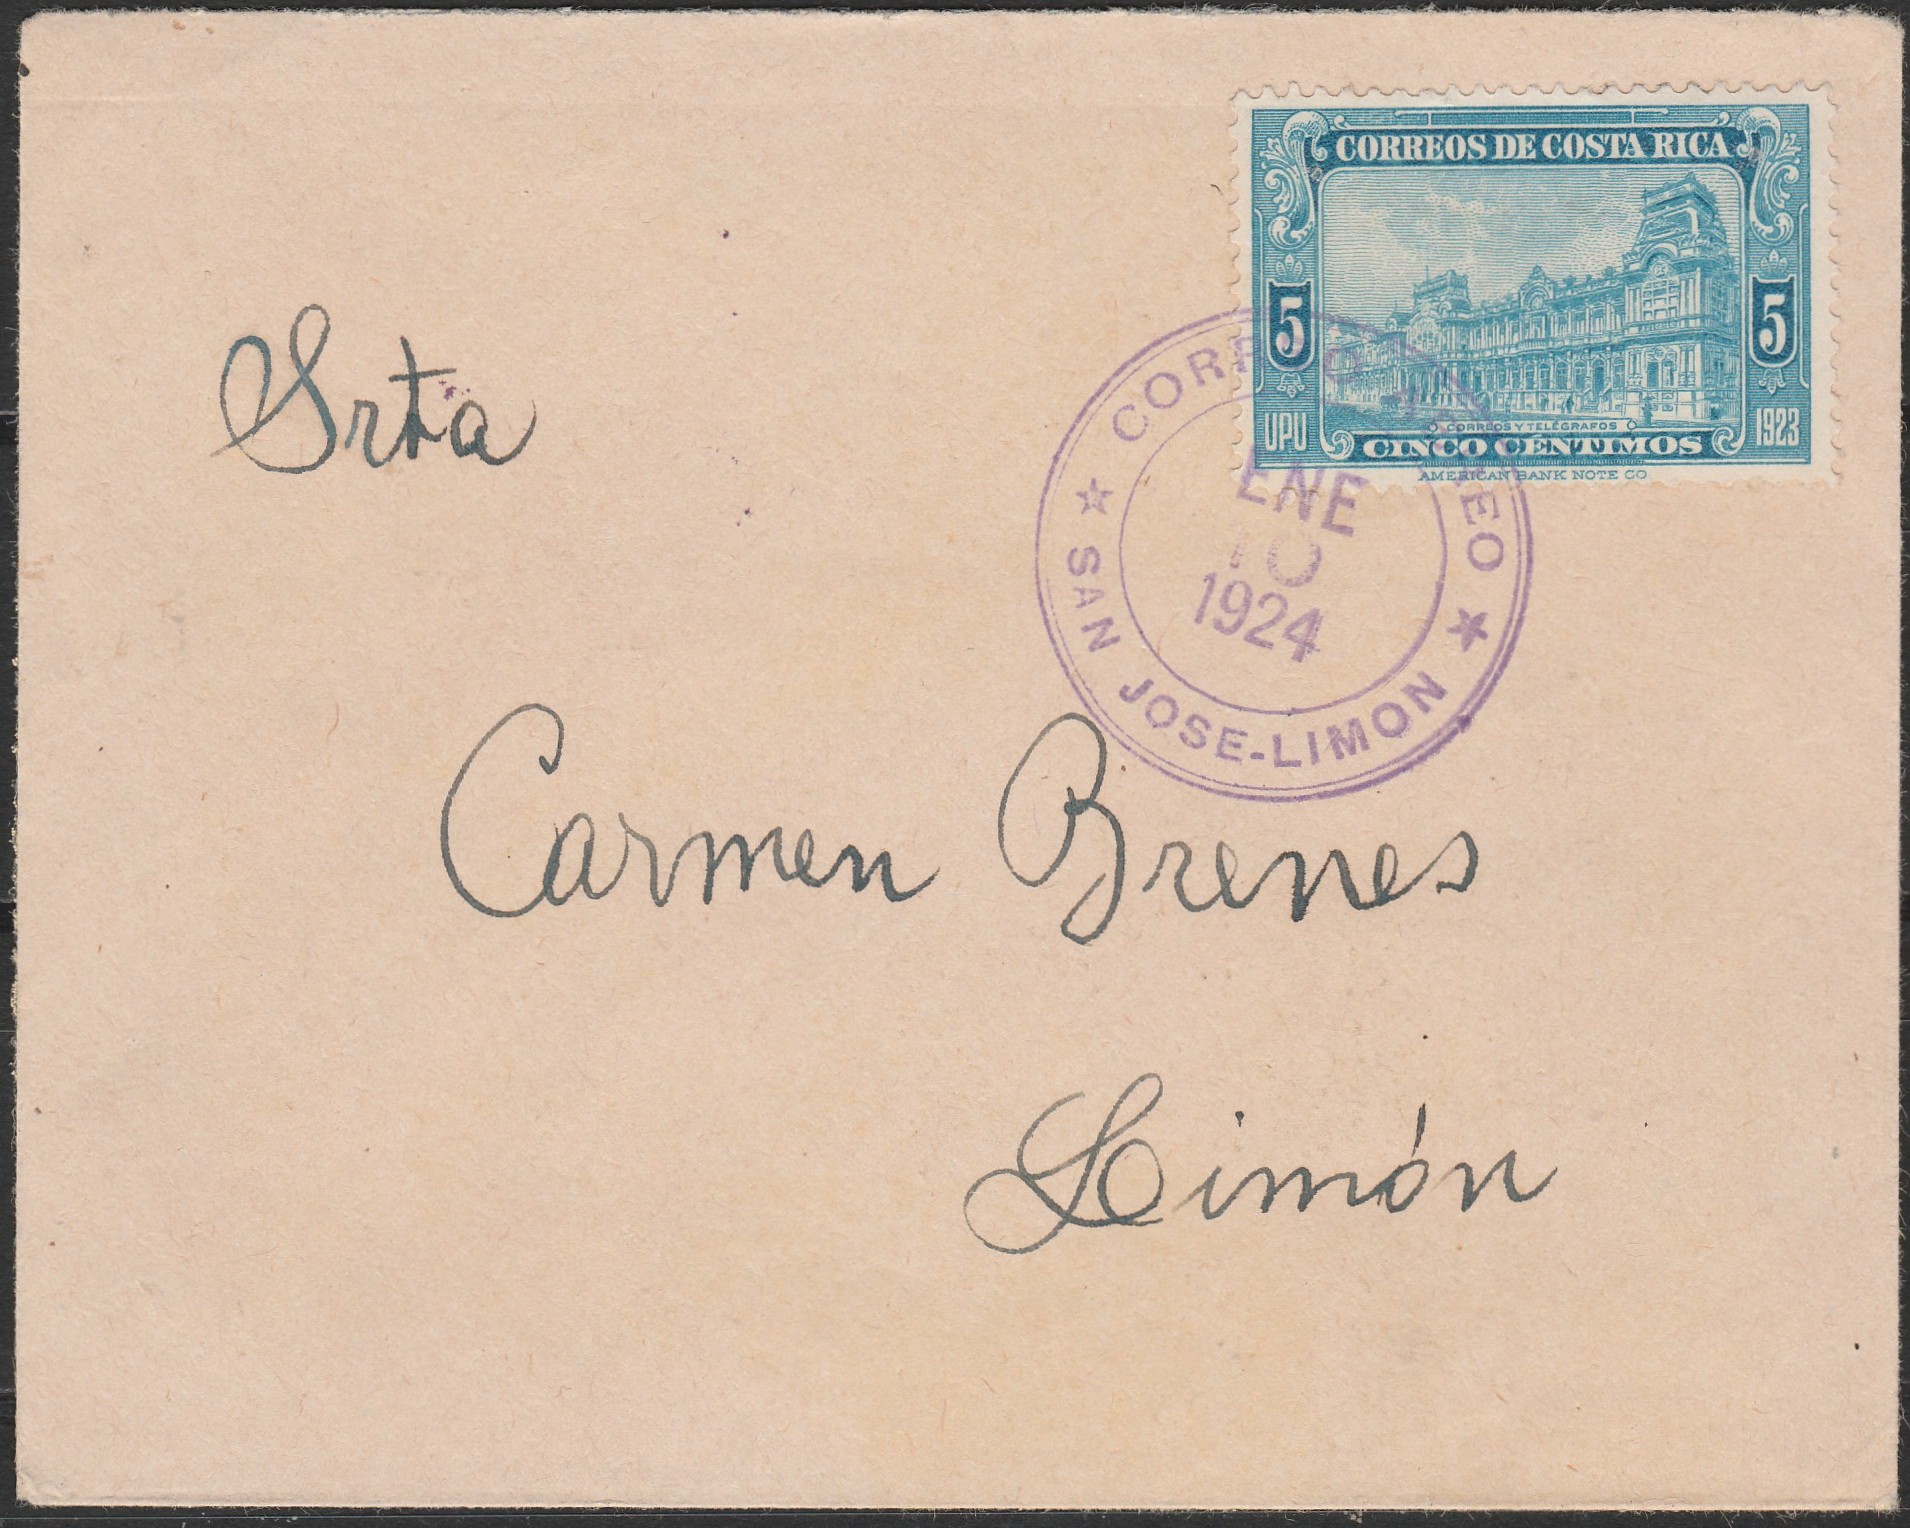 CORREOS DE COSTA RICA
5 5
UPU 1923
CORREOS Y TELÉGRAFOS
CINCO CÉNTIMOS
AMERICAN BANK NOTE CO
CORREO AEREO
ENE
10
1924
SAN JOSE-LIMON
Srta
Carmen Brenes
Limón